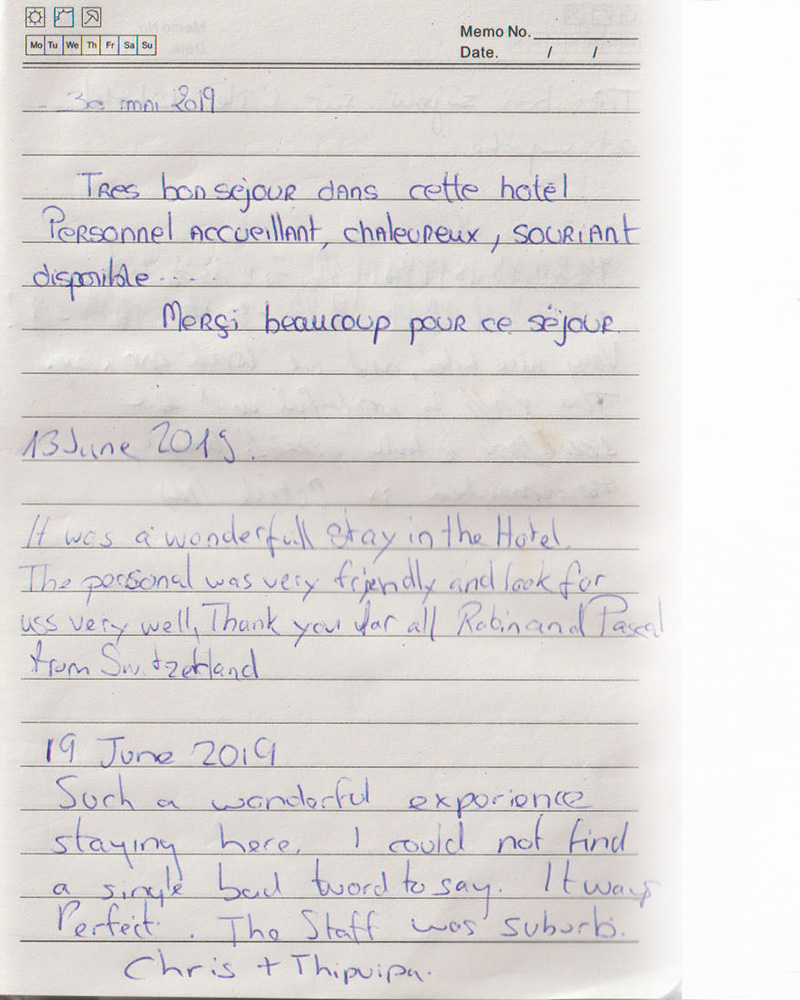 Mo Tu We Th Fr Sa Su
Memo No.
Date. / /
30 mai 2019
Tres bon sejour dans cette hotel
Personnel accueillant, chaleureux, souriant
disponible....
Mersi beaucoup pour ce séjour.
13 June 2019.
It was a wonderfull stay in the Hotel.
The persional was very friendly and look for
uss very well, Thank you for all Robin and Pascal
from Switzerland
19 June 2019
Such a wonderful experience
staying here. I could not find
a single bad word to say. It was
Perfect. The Staff was suburb.
Chris + Thipvipa.